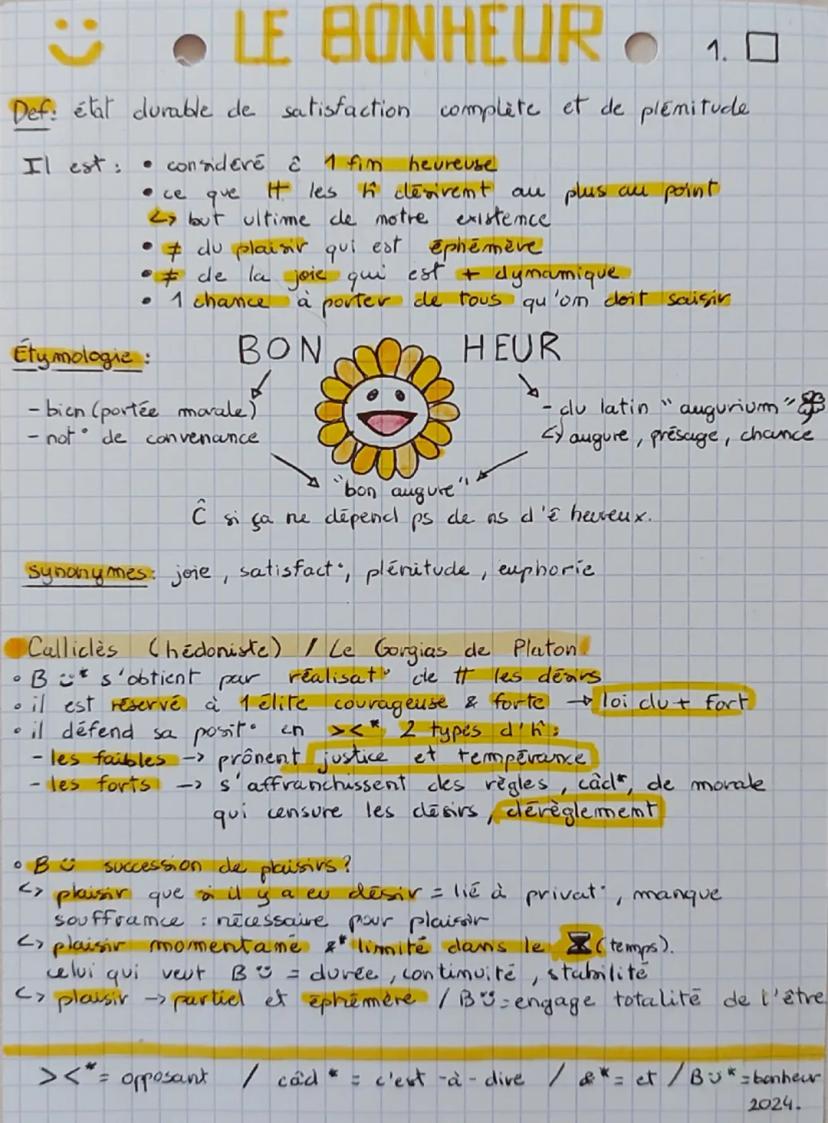 LE BONHEUR
1.
Def: état durable de satisfaction complète et de plémitude
Il est : • considéré ĉ 1 fin heureuse
• ce que tt les h̄ désirent au plus au point
↳ but ultime de notre existence
• ≠ du plaisir qui est éphémère
• ≠ de la joie qui est + dynamique
• 1 chance à porter de tous qu'on doit saisir
Étymologie : BON HEUR
- bien (portée morale)
- not° de convenance
- du latin "augurium"
↳ augure, présage, chance
"bon augure"
Ĉ si ça ne dépend ps de ns d'ê heureux.
synonymes : joie, satisfact°, plénitude, euphorie
Calliclès (hédoniste) / Le Gorgias de Platon
• B ü* s'obtient par réalisat° de tt les désirs
• il est réservé à 1 élite courageuse & forte → loi du + fort
• il défend sa posit° en ><* 2 types d'h̄ :
- les faibles → prônent justice et tempérance
- les forts → s'affranchissent des règles, câd*, de morale
qui censure les désirs, dérèglement
• B ü succession de plaisirs ?
↳ plaisir que si il y a eu désir = lié à privat°, manque
souffrance : nécessaire pour plaisir
↳ plaisir momentané &* limité dans le ⌛ (temps).
celui qui veut B ü = durée, continuité, stabilité
↳ plaisir → partiel et éphémère / B ü = engage totalité de l'être
><* = opposant / câd * = c'est-à-dire / &* = et / B ü* = bonheur
2024.